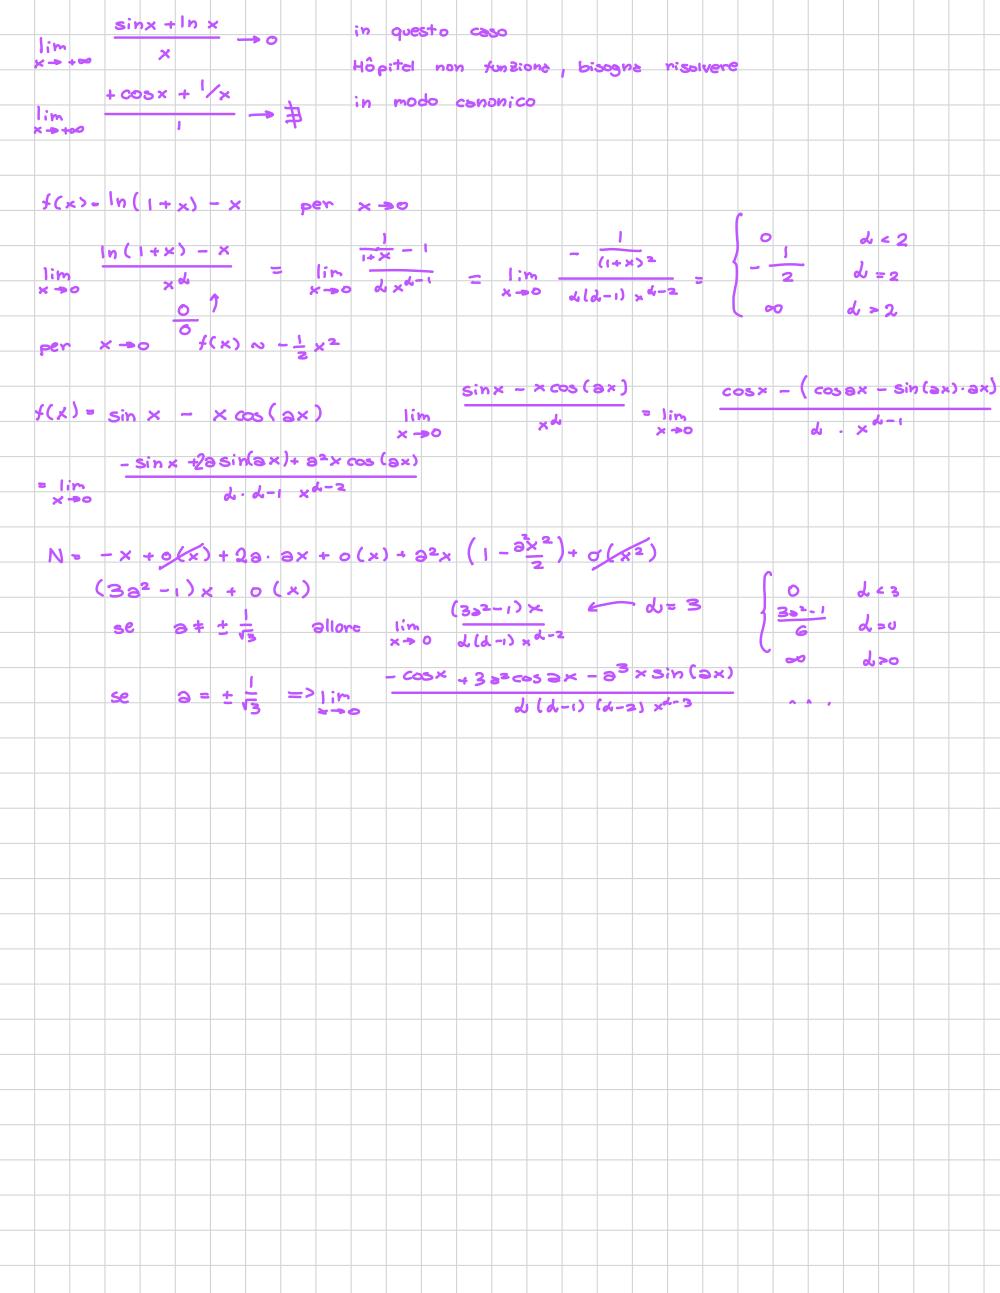 lim x→+∞ (sinx + ln x)/x → 0 in questo caso
Hôpital non funziona, bisogna risolvere
lim x→+∞ (+ cosx + 1/x)/1 → ∄ in modo canonico
f(x) = ln(1+x) - x per x→0
lim x→0 (ln(1+x) - x)/x^α = lim x→0 (1/(1+x) - 1)/(αx^(α-1)) = lim x→0 (- 1/(1+x)²)/(α(α-1) x^(α-2)) = { 0 α < 2
-1/2 α = 2
∞ α > 2
0/0 ↑
per x→0 f(x) ~ -1/2 x²
f(x) = sin x - x cos(ax) lim x→0 (sinx - x cos(ax))/x^α = lim x→0 (cosx - (cosax - sin(ax)·ax))/(α · x^(α-1))
= lim x→0 (- sinx + 2a sin(ax) + a²x cos(ax))/(α · α-1 x^(α-2))
N = - x + o(x) + 2a· ax + o(x) + a²x (1 - a²x²/2) + o(x²)
(3a² - 1) x + o(x)
se a ≠ ± 1/√3 allora lim x→0 ((3a²-1) x)/(α(α-1) x^(α-2)) ← α = 3 { 0 α < 3
(3a²-1)/6 α = 0
∞ α > 0
se a = ± 1/√3 => lim x→0 (- cosx + 3a² cos ax - a³ x sin(ax))/(α(α-1)(α-2) x^(α-3)) ...